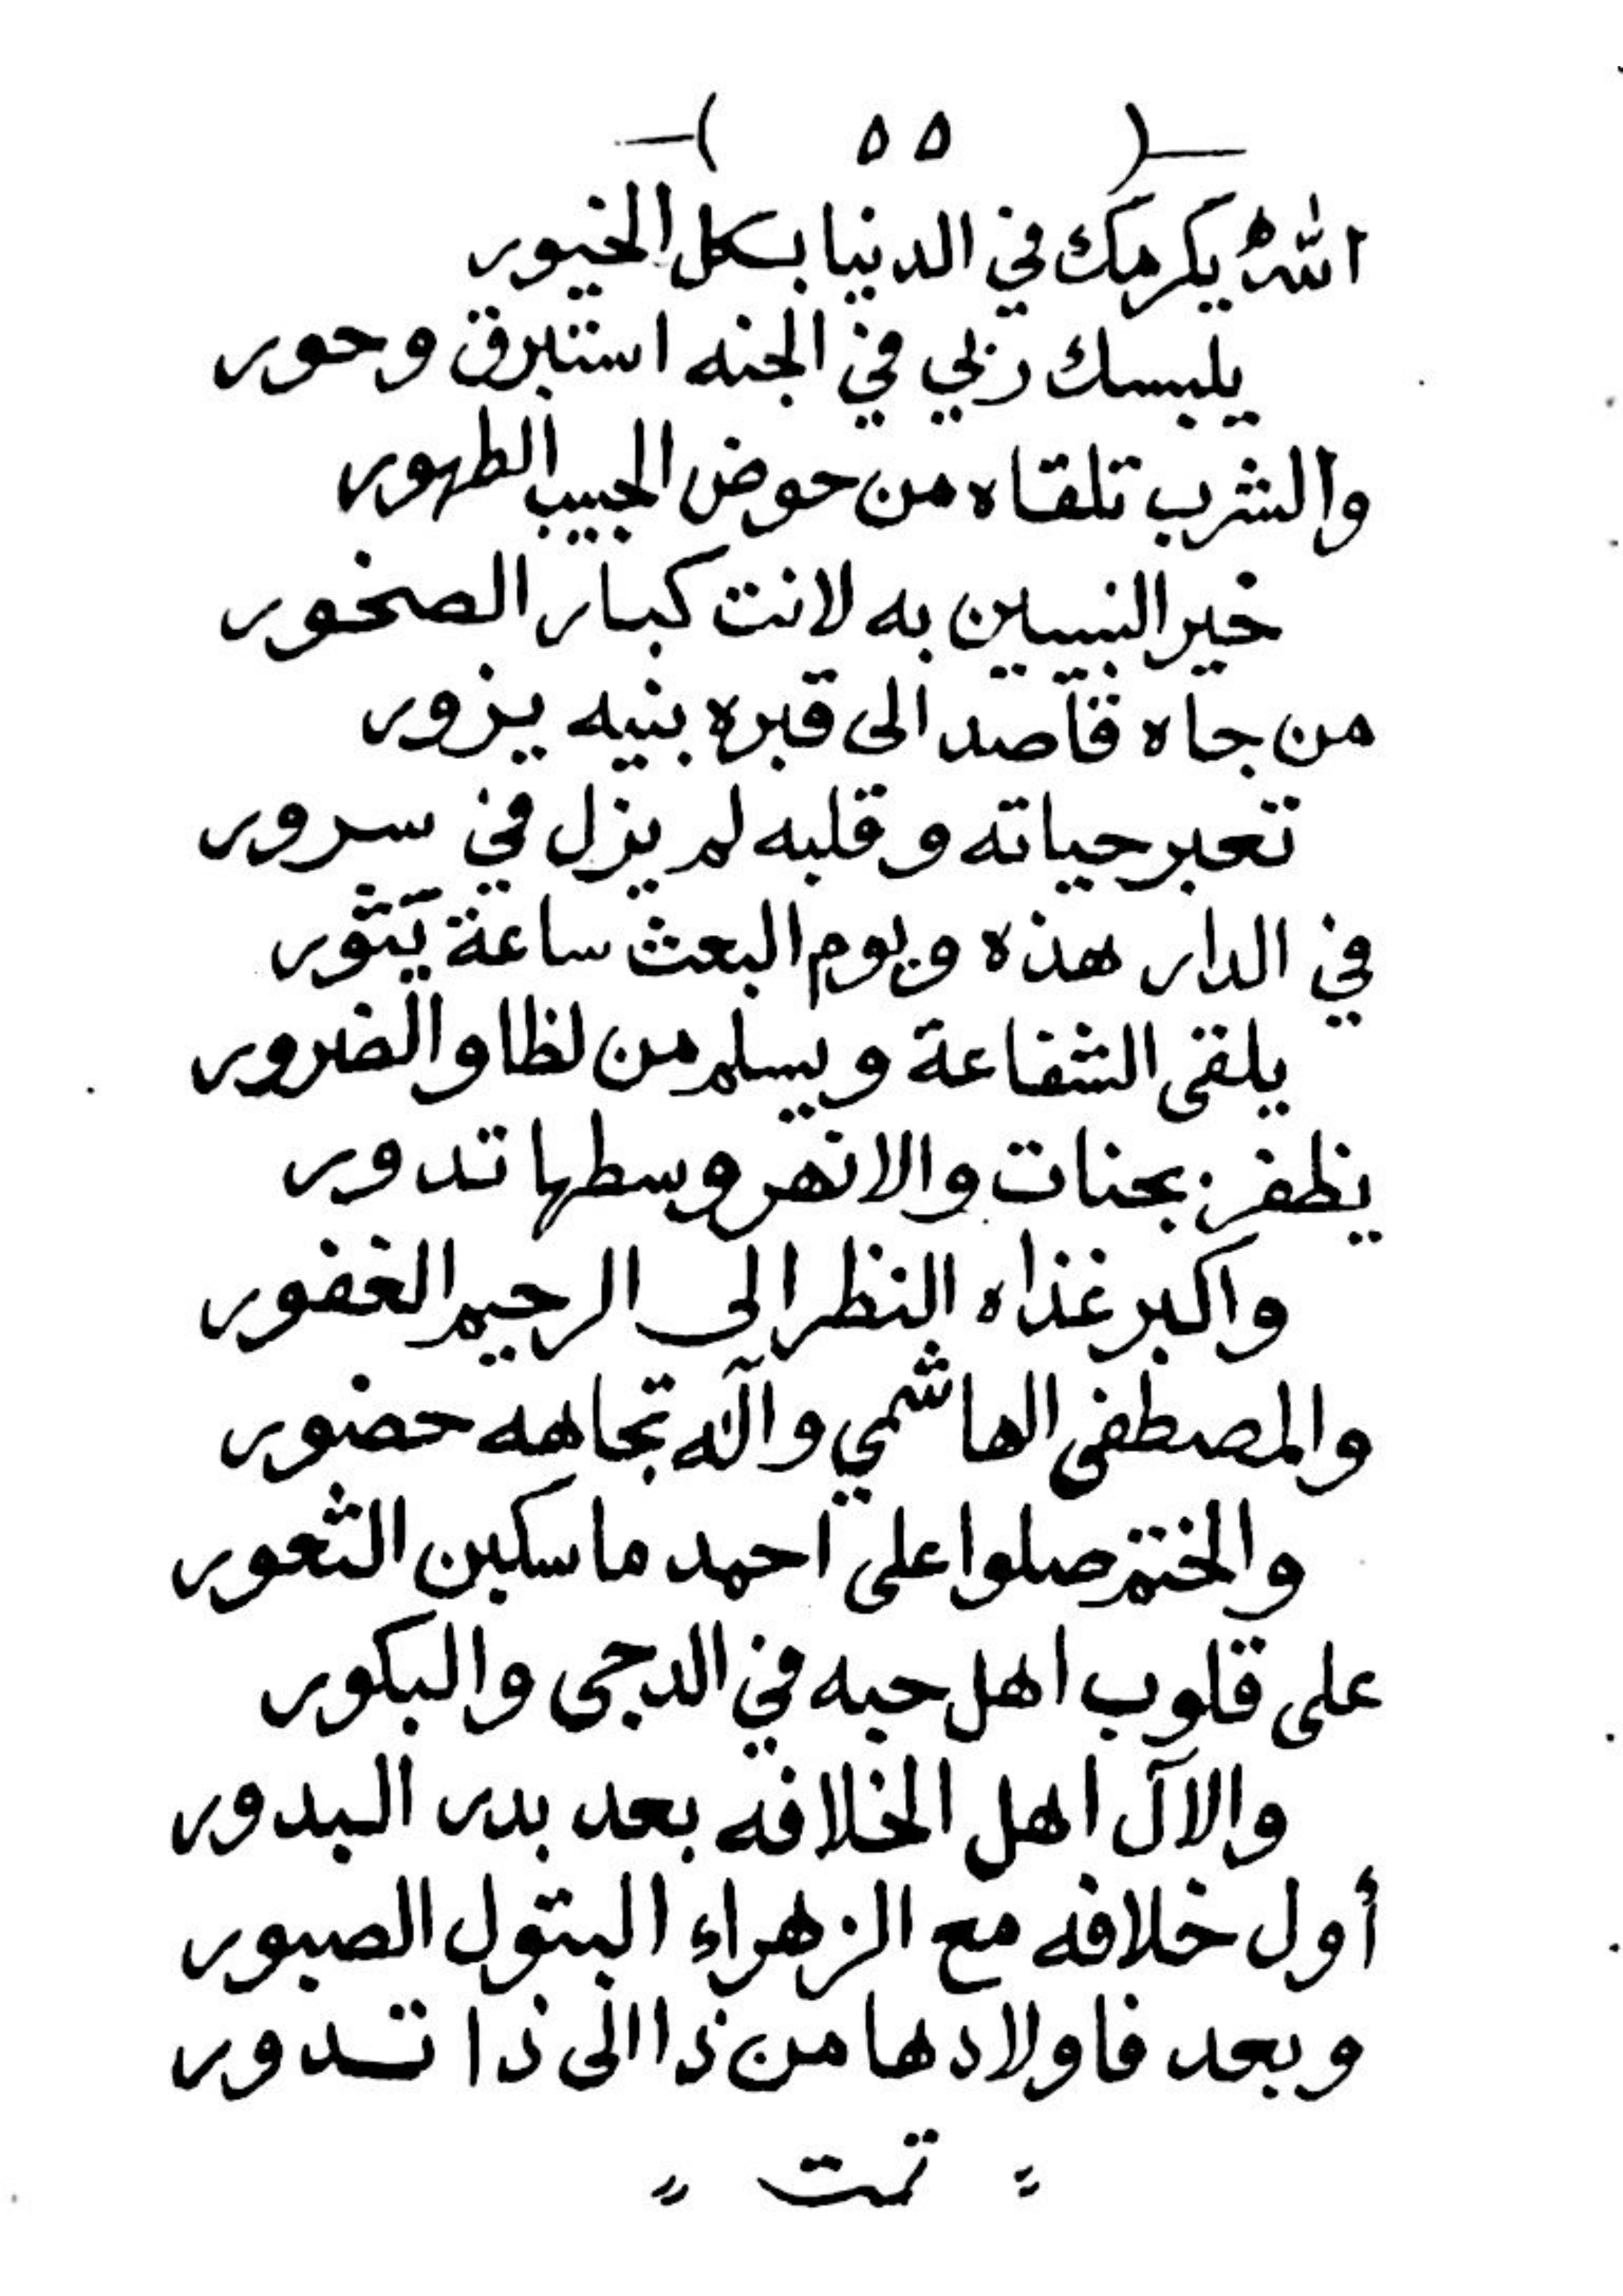 —( ٥٥ )—
الله يكرمك في الدنيا بكل الخيور
يلبسك ربي في الجنه استبرق وحور
والشرب تلقاه من حوض الحبيب الطهور
خير النبيين به لانت كبار الصخور
من جاه قاصد الى قبره بنيه يزور
تعبر حياته وقلبه لم يزل في سرور
في الدار هذه ويوم البعث ساعة يَثُور
يلقى الشفاعة ويسلم من لظا والضرور
يظفر بجنات والانهر وسطها تدور
واكبر غذاه النظر الى الرحيم الغفور
والمصطفى الهاشمي وآله تجاهه حضور
والختم صلوا على احمد ما سكبن الثعور
على قلوب اهل حبه في الدجى والبكور
والآل اهل الخلافه بعد بدر البدور
أول خلافه مع الزهراء البتول الصبور
وبعد فاولادها من ذا الى ذا تدور
" تمت "